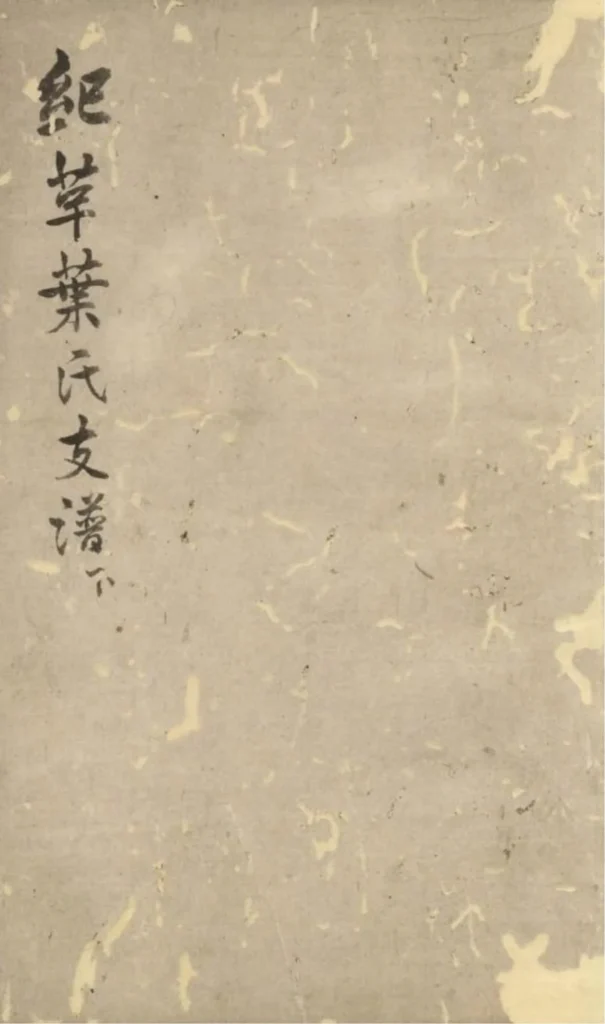 紀革葉氏支譜下